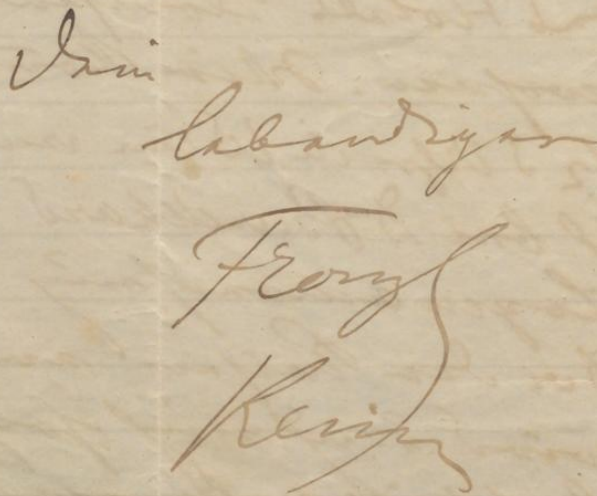 Dein
lebendiger
Franz
Keim